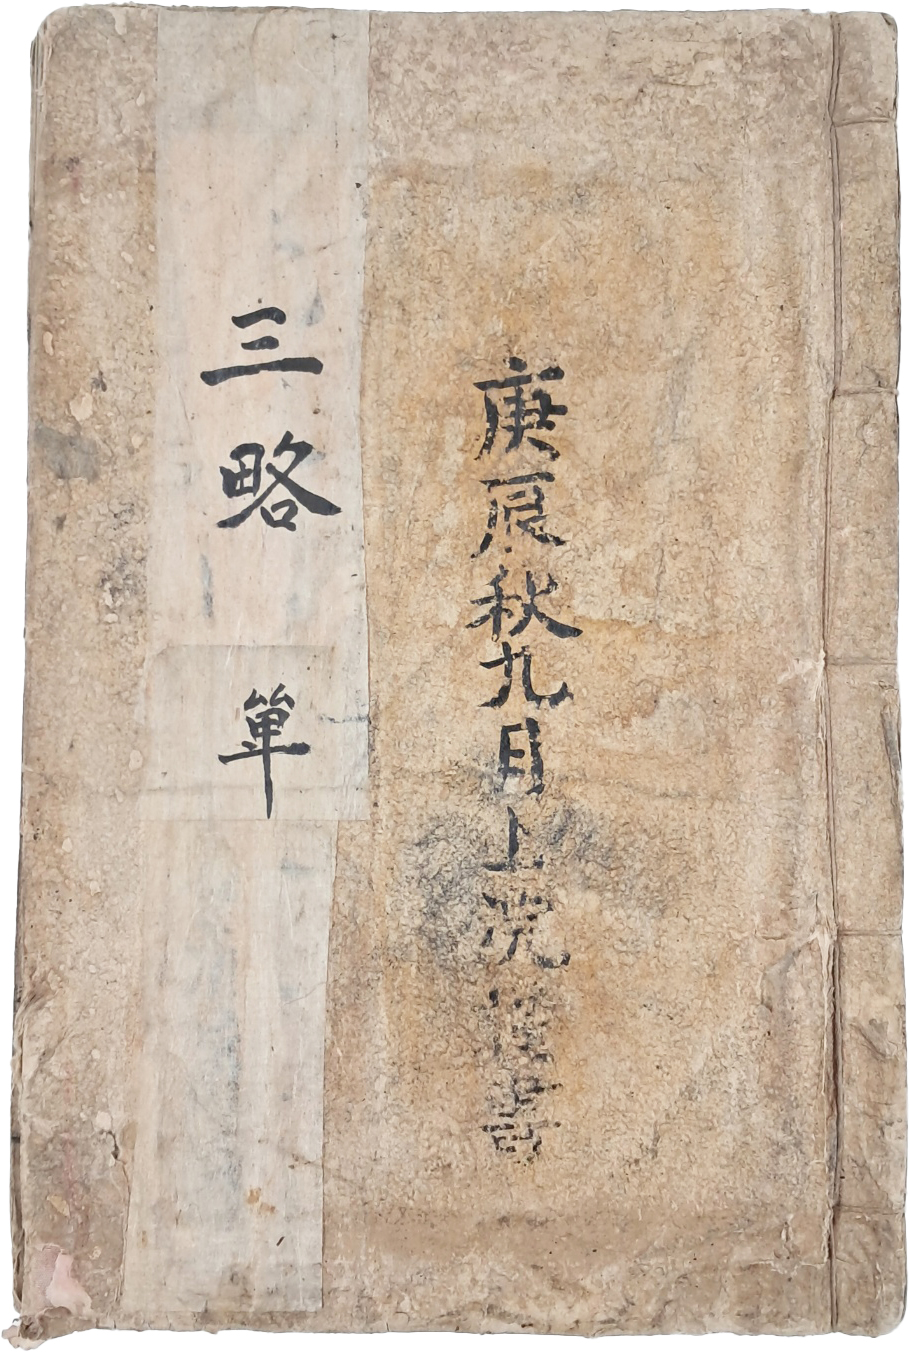 庚辰秋九月上浣
三略 單